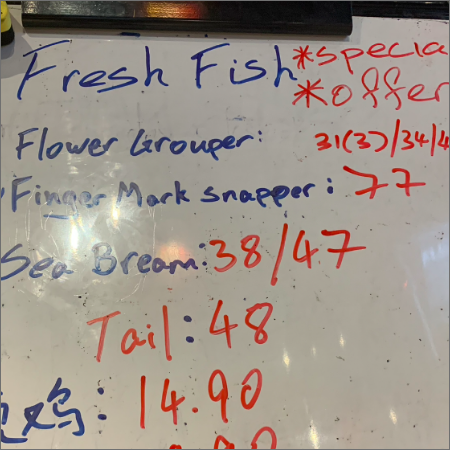 Fresh Fish *specia
*offer
Flower Grouper: 31(3)/34/4
Finger Mark snapper: 77
Sea Bream: 38/47
Tail: 48
鸡: 14.90